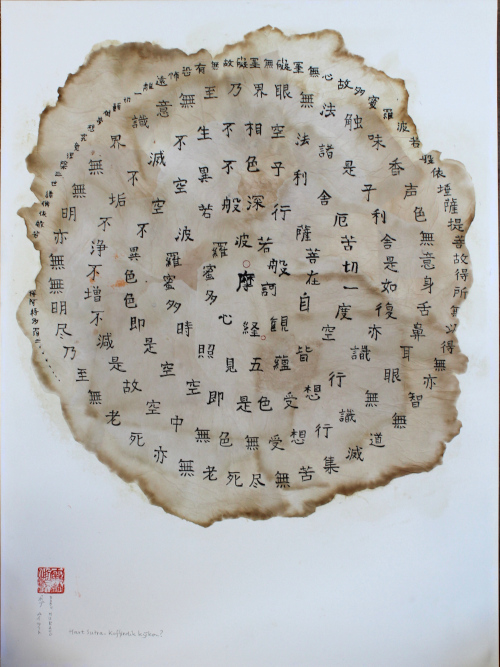 摩訶般若波羅蜜多心経
観自在菩薩行深般若波羅蜜多時照見五蘊皆空度一切苦厄舎利子色不異空空不異色色即是空空即是色受想行識亦復如是舎利子是諸法空相不生不滅不垢不浄不増不減是故空中無色無受想行識無眼耳鼻舌身意無色声香味触法無眼界乃至無意識界無無明亦無無明尽乃至無老死亦無老死尽無苦集滅道無智亦無得以無所得故菩提薩埵依般若波羅蜜多故心無罣礙無罣礙故無有恐怖遠離一切
Hart Sutra